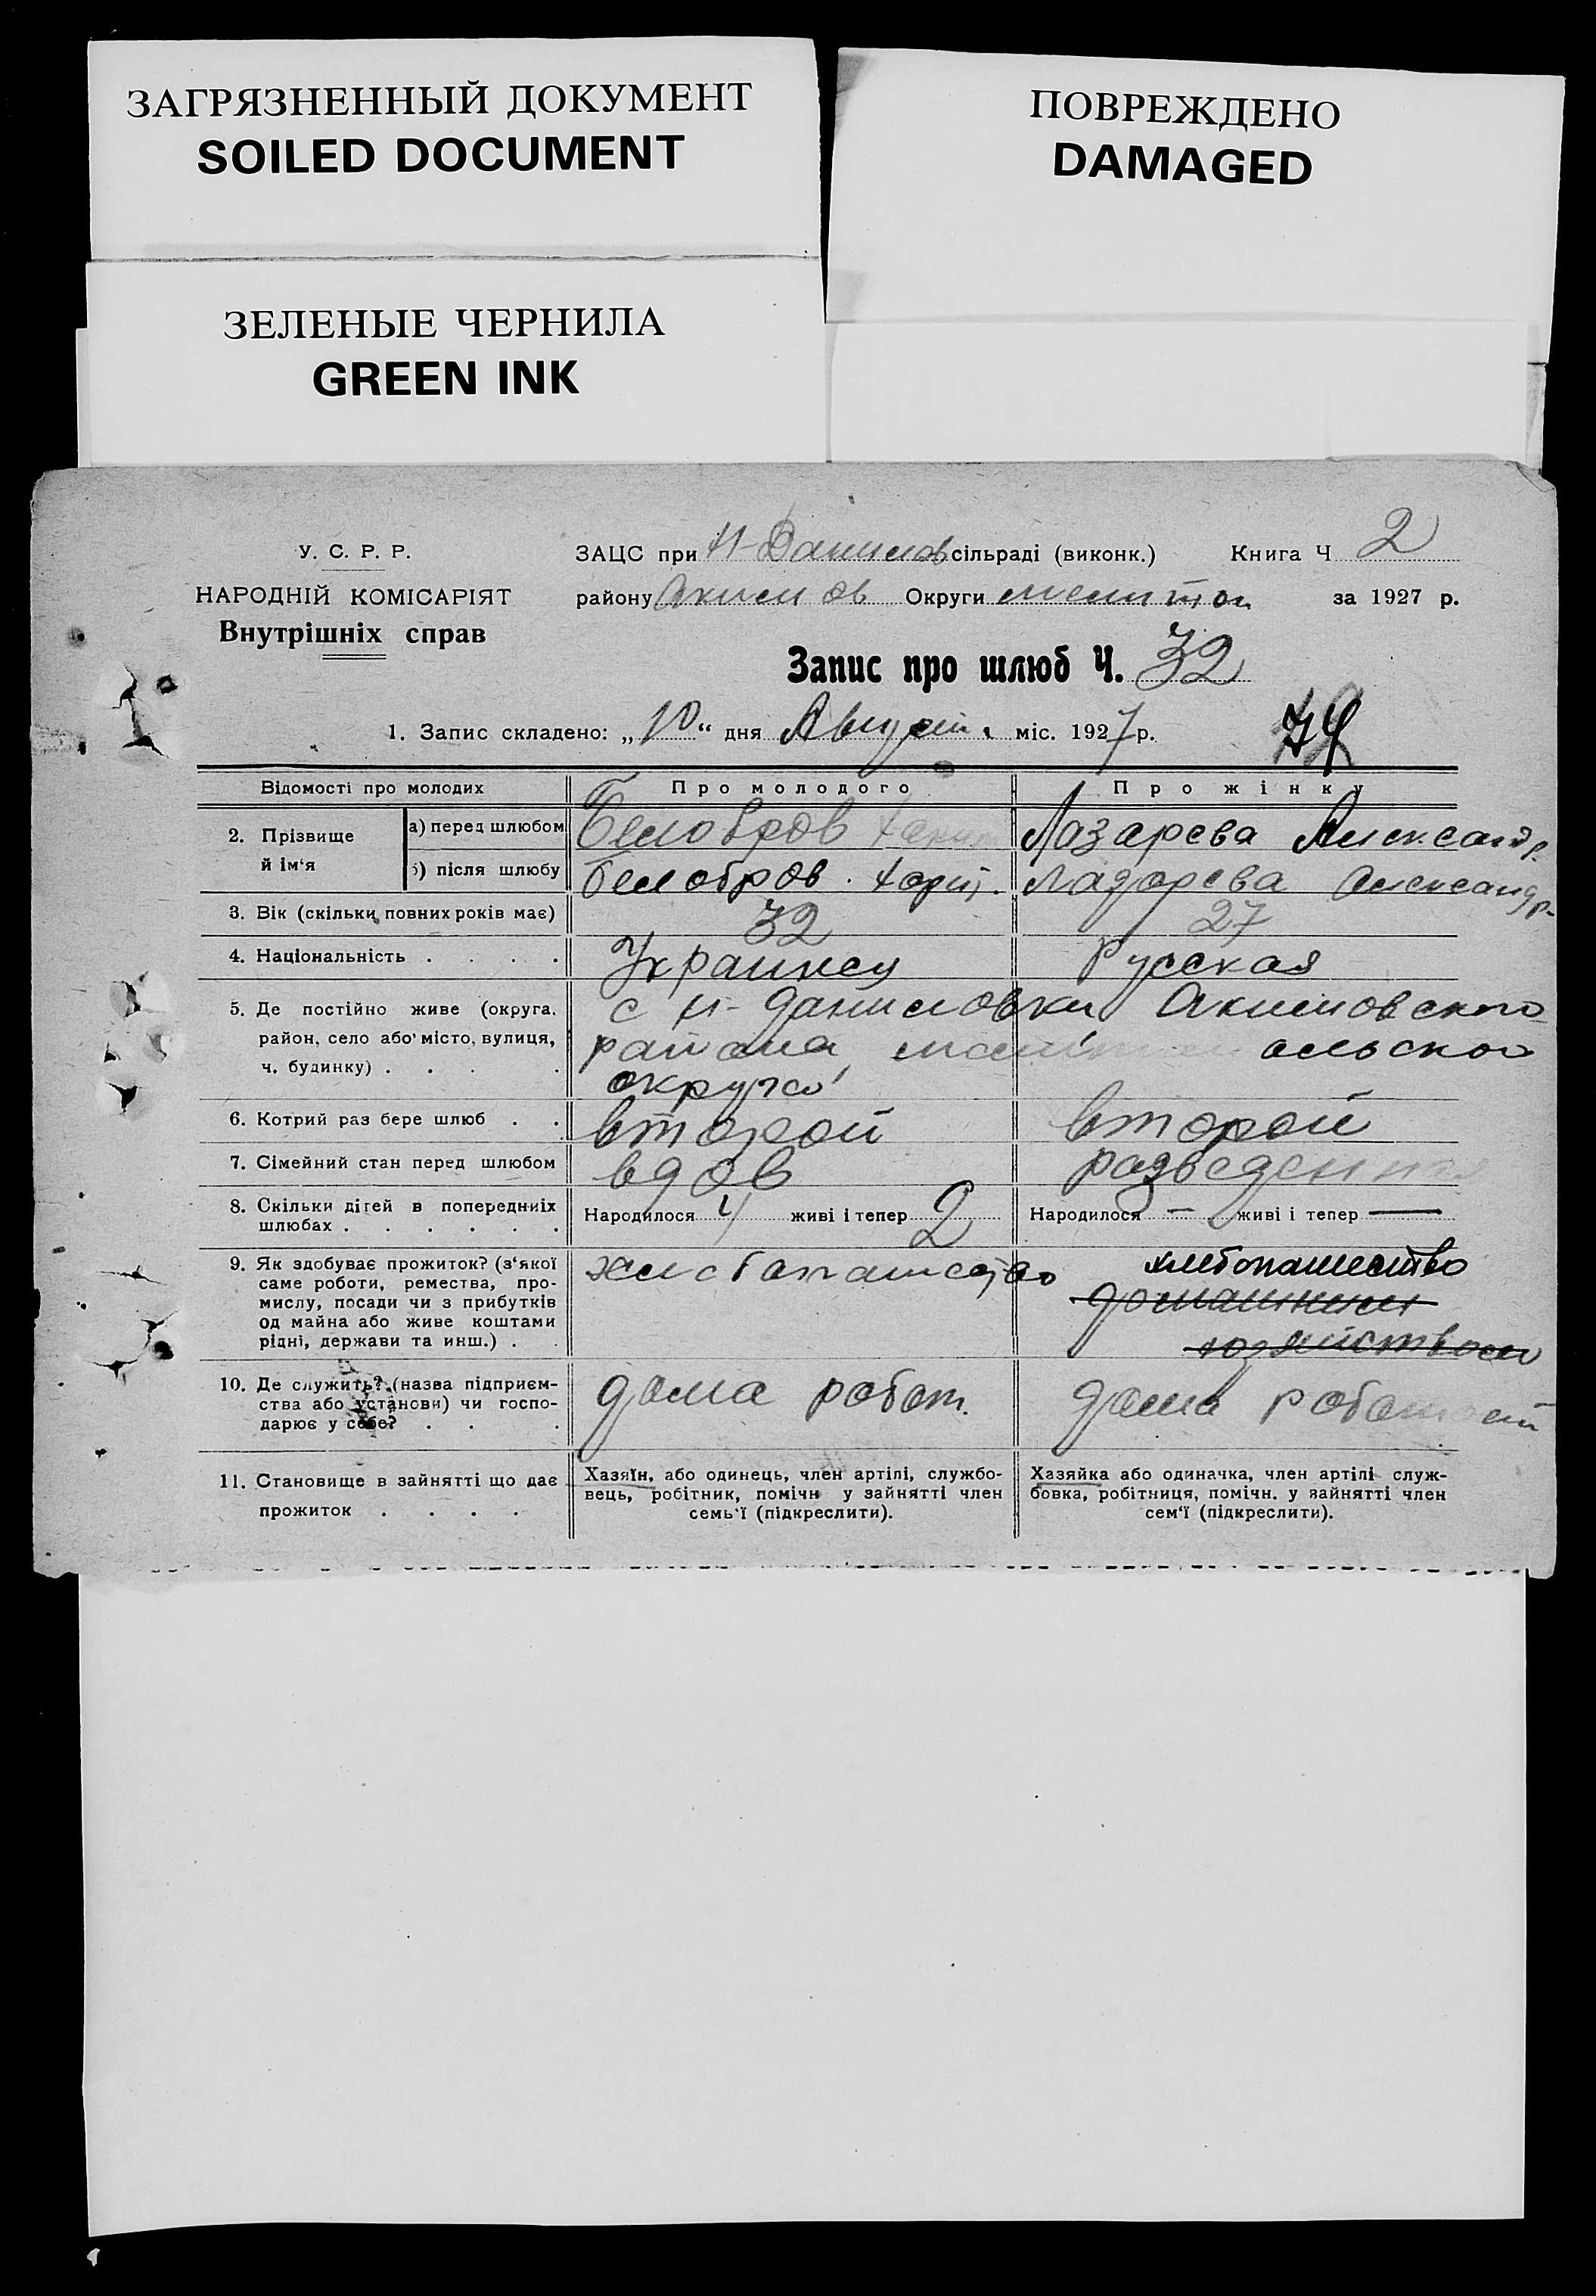 ЗАГРЯЗНЕННЫЙ ДОКУМЕНТ
SOILED DOCUMENT
ПОВРЕЖДЕНО
DAMAGED
ЗЕЛЕНЫЕ ЧЕРНИЛА
GREEN INK
У. С. Р. Р.
НАРОДНІЙ КОМІСАРІЯТ
Внутрішніх справ
ЗАЦС при Н-Данилов сільраді (виконк.) Книга Ч 2
району Акимов Округи мелитоп за 1927 р.
Запис про шлюб Ч. 32
1. Запис складено: „10“ дня Август. міс. 1927 р.
74
Відомості про молодих Про молодого Про жінку
2. Прізвище й ім‘я а) перед шлюбом Белобров Лазарева Александр.
б) після шлюбу Белобров. Харит. Лазарева Александр.
3. Вік (скільки повних років має) 32 27
4. Національність . . . . Украинец Русская
5. Де постійно живе (округа, с Н-Даниловки Акимовского
район, село або місто, вулиця, района мелитопольской
ч. будинку) . . . . округи
6. Котрий раз бере шлюб . . второй второй
7. Сімейний стан перед шлюбом вдов разведенная
8. Скільки дітей в попередніх Народилося 4 живі і тепер 2 Народилося — живі і тепер —
шлюбах . . . . . .
9. Як здобуває прожиток? (з‘якої хлебопашество хлебопашество
саме роботи, ремества, про- домашним
мислу, посади чи з прибутків хозяйством
од майна або живе коштами
рідні, держави та инш.) . .
10. Де служить? (назва підприєм- дома работ. дома работает
ства або установи) чи госпо-
дарює у себе? . . .
11. Становище в зайнятті що дає прожиток . . . .
Хазяїн, або одинець, член артілі, службо-
вець, робітник, помічн у зайнятті член
семь‘ї (підкреслити).
Хазяйка або одиначка, член артілі служ-
бовка, робітниця, помічн. у зайнятті член
сем‘ї (підкреслити).